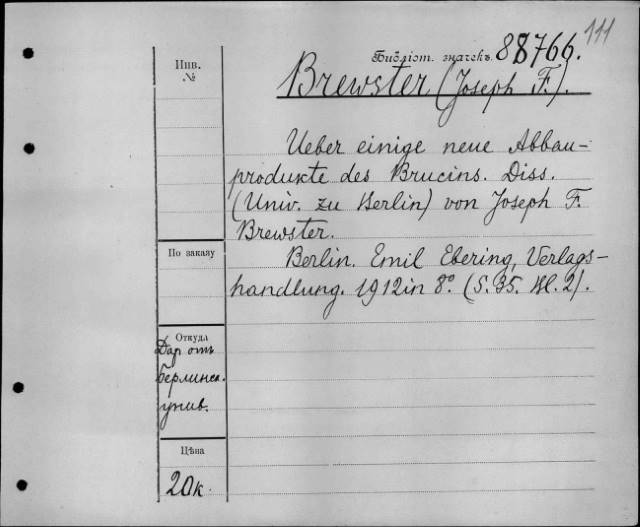 111
Библіот. значекъ 88766.
Инв.
№
Brewster (Joseph F.).
Ueber einige neue Abbau-
produkte des Brucins. Diss.
(Univ. zu Berlin) von Joseph F.
Brewster.
По заказу
Berlin. Emil Ebering, Verlags-
handlung. 1912 in 8° (S. 35. Bl. 2).
Откуда
Дар отъ
берлинск.
унив.
Цѣна
20 к.